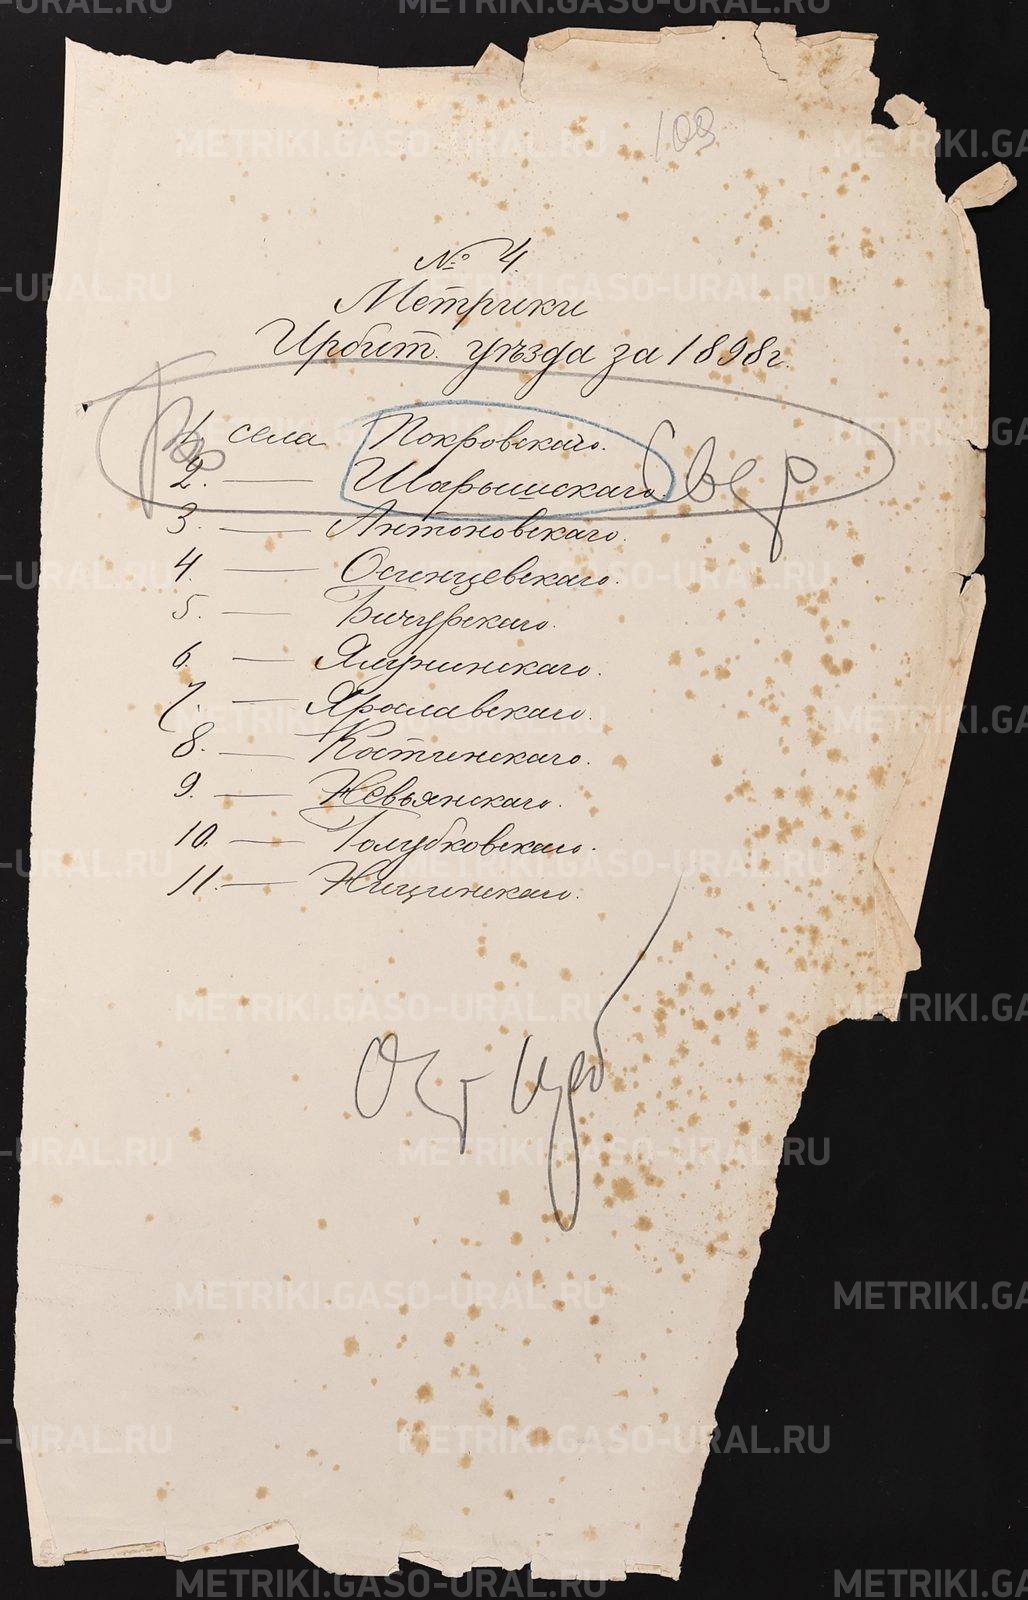 109
№ 4.
Метрики
Ирбит. уѣзда за 1898 г.
1. села Покровскаго.
2. — Шарышскаго
3. — Антоновскаго.
4. — Осинцевскаго.
5. — Бичурскаго.
6. — Ялунинскаго.
7. — Ярославскаго.
8. — Костинскаго.
9. — Невьянскаго.
10. — Голубковскаго.
11. — Ницинскаго.
METRIKI.GASO-URAL.RU